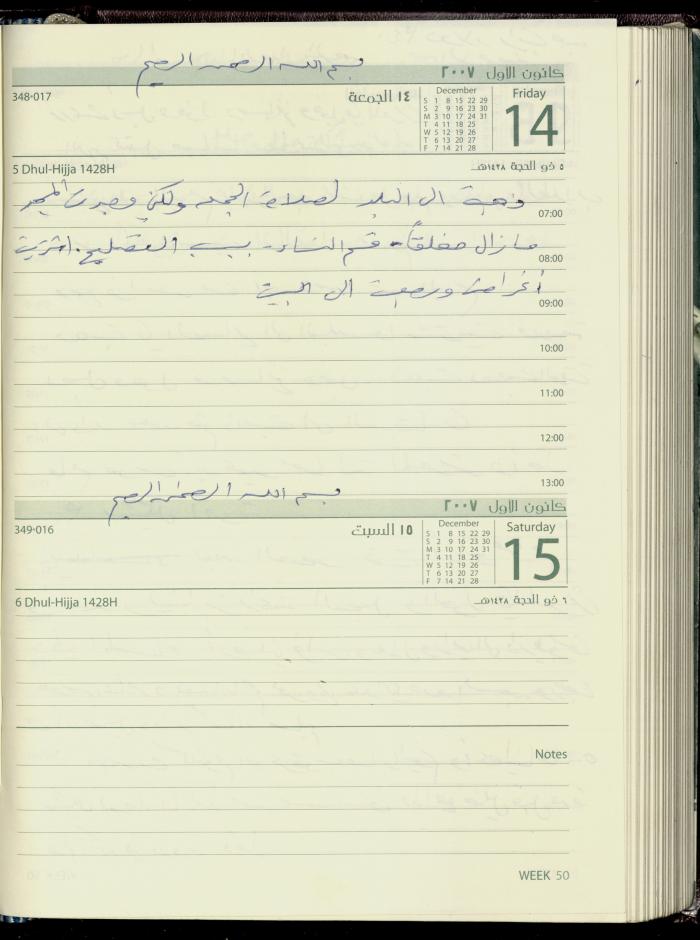 بسم الله الرحمن الرحيم
كانون الاول ٢٠٠٧
348-017
١٤ الجمعة
December
S 1 8 15 22 29
S 2 9 16 23 30
M 3 10 17 24 31
T 4 11 18 25
W 5 12 19 26
T 6 13 20 27
F 7 14 21 28
Friday
14
5 Dhul-Hijja 1428H
٥ ذو الحجة ١٤٢٨هـ
ذهبت الى البلد لصلاة الجمعة ولكن وجدت المسجد
07:00
مازال مغلقاً - قسم النساء - بسبب التصليح. اشتريت
08:00
أغراض ورجعت الى البيت
09:00
10:00
11:00
12:00
13:00
بسم الله الرحمن الرحيم
كانون الاول ٢٠٠٧
349-016
١٥ السبت
December
S 1 8 15 22 29
S 2 9 16 23 30
M 3 10 17 24 31
T 4 11 18 25
W 5 12 19 26
T 6 13 20 27
F 7 14 21 28
Saturday
15
6 Dhul-Hijja 1428H
٦ ذو الحجة ١٤٢٨هـ
Notes
WEEK 50